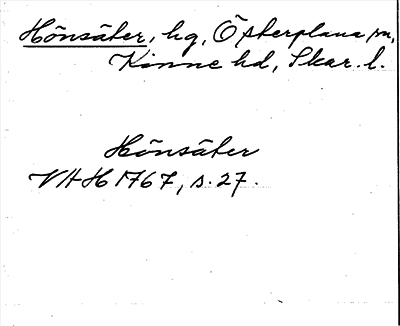 Hönsäter, hg, Österplana sn,
Kinne hd, Skar. l.
Hönsäter
VHH 1767, s. 27.